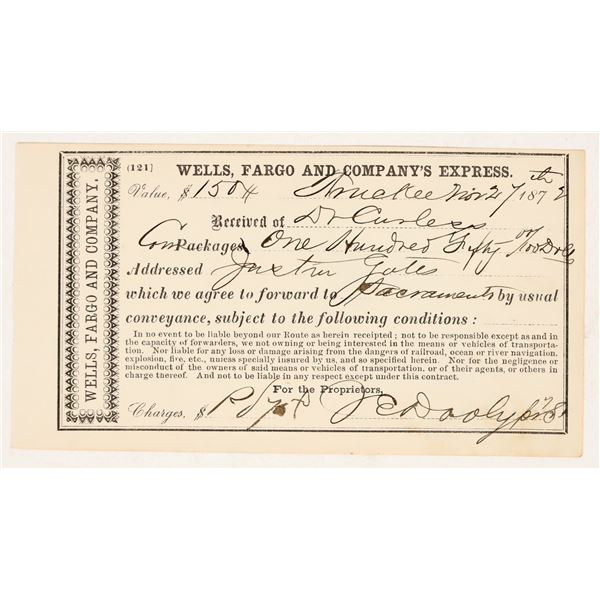 WELLS, FARGO AND COMPANY.
(121) WELLS, FARGO AND COMPANY'S EXPRESS.
Value, $ 150 Truckee Nov 27th 1872
Received of Dr Curless
Coin Package One Hundred Fifty 00/100 Dolls
Addressed Justin Gates
which we agree to forward to Sacramento by usual
conveyance, subject to the following conditions:
In no event to be liable beyond our Route as herein receipted; not to be responsible except as and in
the capacity of forwarders, we not owning or being interested in the means or vehicles of transporta-
tion. Nor liable for any loss or damage arising from the dangers of railroad, ocean or river navigation,
explosion, fire, etc. Nor unless specially insured by us, and so specified herein. Nor for negligence or
misconduct of the owners of said means or vehicles of transportation, or of their agents, or others in
charge thereof. And not to be liable in any respect under this contract.
For the Proprietors,
Charges, $ Dooly